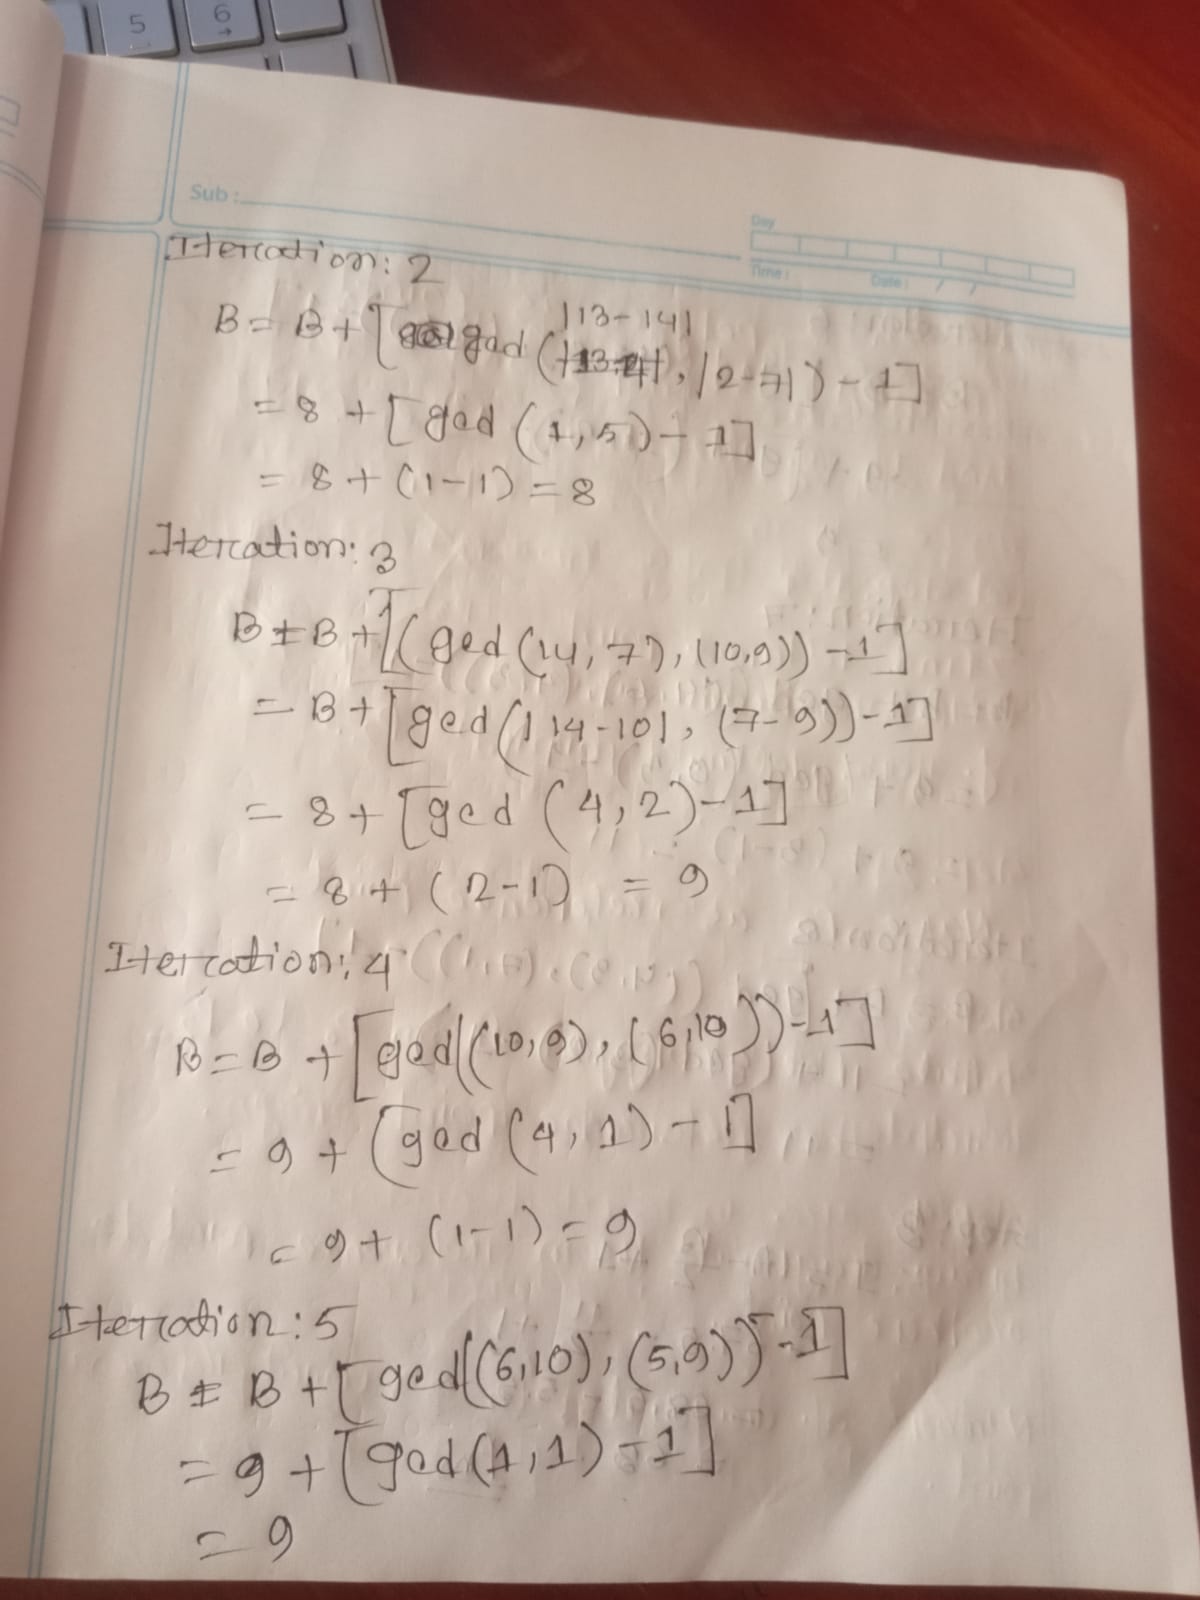 5
6
Sub:
Day
Time:
Date: / /
Iteration: 2
|13-14|
B = B + [gcd ( , |2-7|) - 1]
= 8 + [gcd (1,5) - 1]
= 8 + (1-1) = 8
Iteration: 3
B = B + [(gcd (14, 7), (10,9)) - 1]
= B + [gcd (|14-10|, (7-9)) - 1]
= 8 + [gcd (4,2) - 1]
= 8 + (2-1) = 9
Iteration: 4
B = B + [gcd((10,9), (6,10)) - 1]
= 9 + [gcd (4,1) - 1]
= 9 + (1-1) = 9
Iteration: 5
B = B + [gcd((6,10), (5,9)) - 1]
= 9 + [gcd(1,1) - 1]
= 9